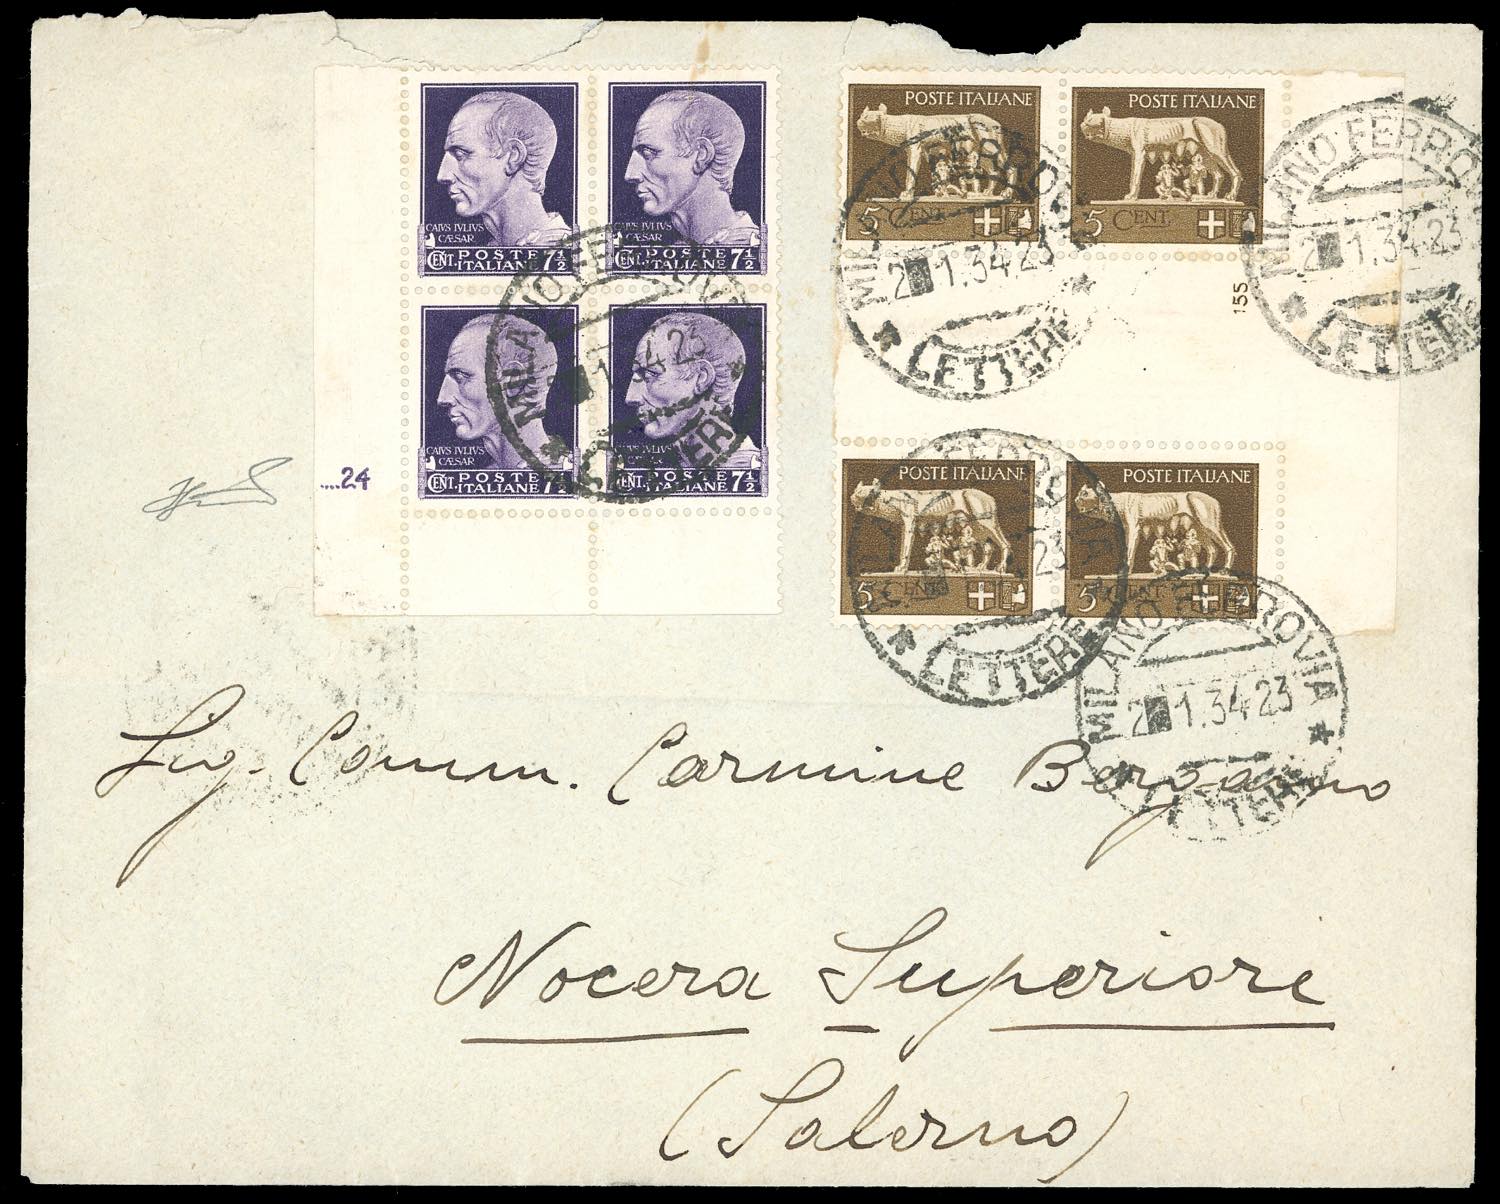 POSTE ITALIANE POSTE ITALIANE
5 CENT. 5 CENT.
CAIVS IVLIVS CÆSAR CAIVS IVLIVS CÆSAR
CENT. POSTE ITALIANE 7½ CENT. POSTE ITALIANE 7½
MILANO FERROVIA
2 1.34 23
LETTERE
MILANO FERROVIA
2 1.34 23
LETTERE
155
MILANO FERROVIA
1.34 23
LETTERE
CAIVS IVLIVS CÆSAR CAIVS IVLIVS CÆSAR
CENT. POSTE ITALIANE 7½ CENT. POSTE ITALIANE 7½
....24
POSTE ITALIANE POSTE ITALIANE
5 CENT. 5 CENT.
MILANO FERROVIA
23
LETTERE
MILANO FERROVIA
2 1.34 23
LETTERE
Sig. Comm. Carmine Bergamo
Nocera Superiore
(Salerno)